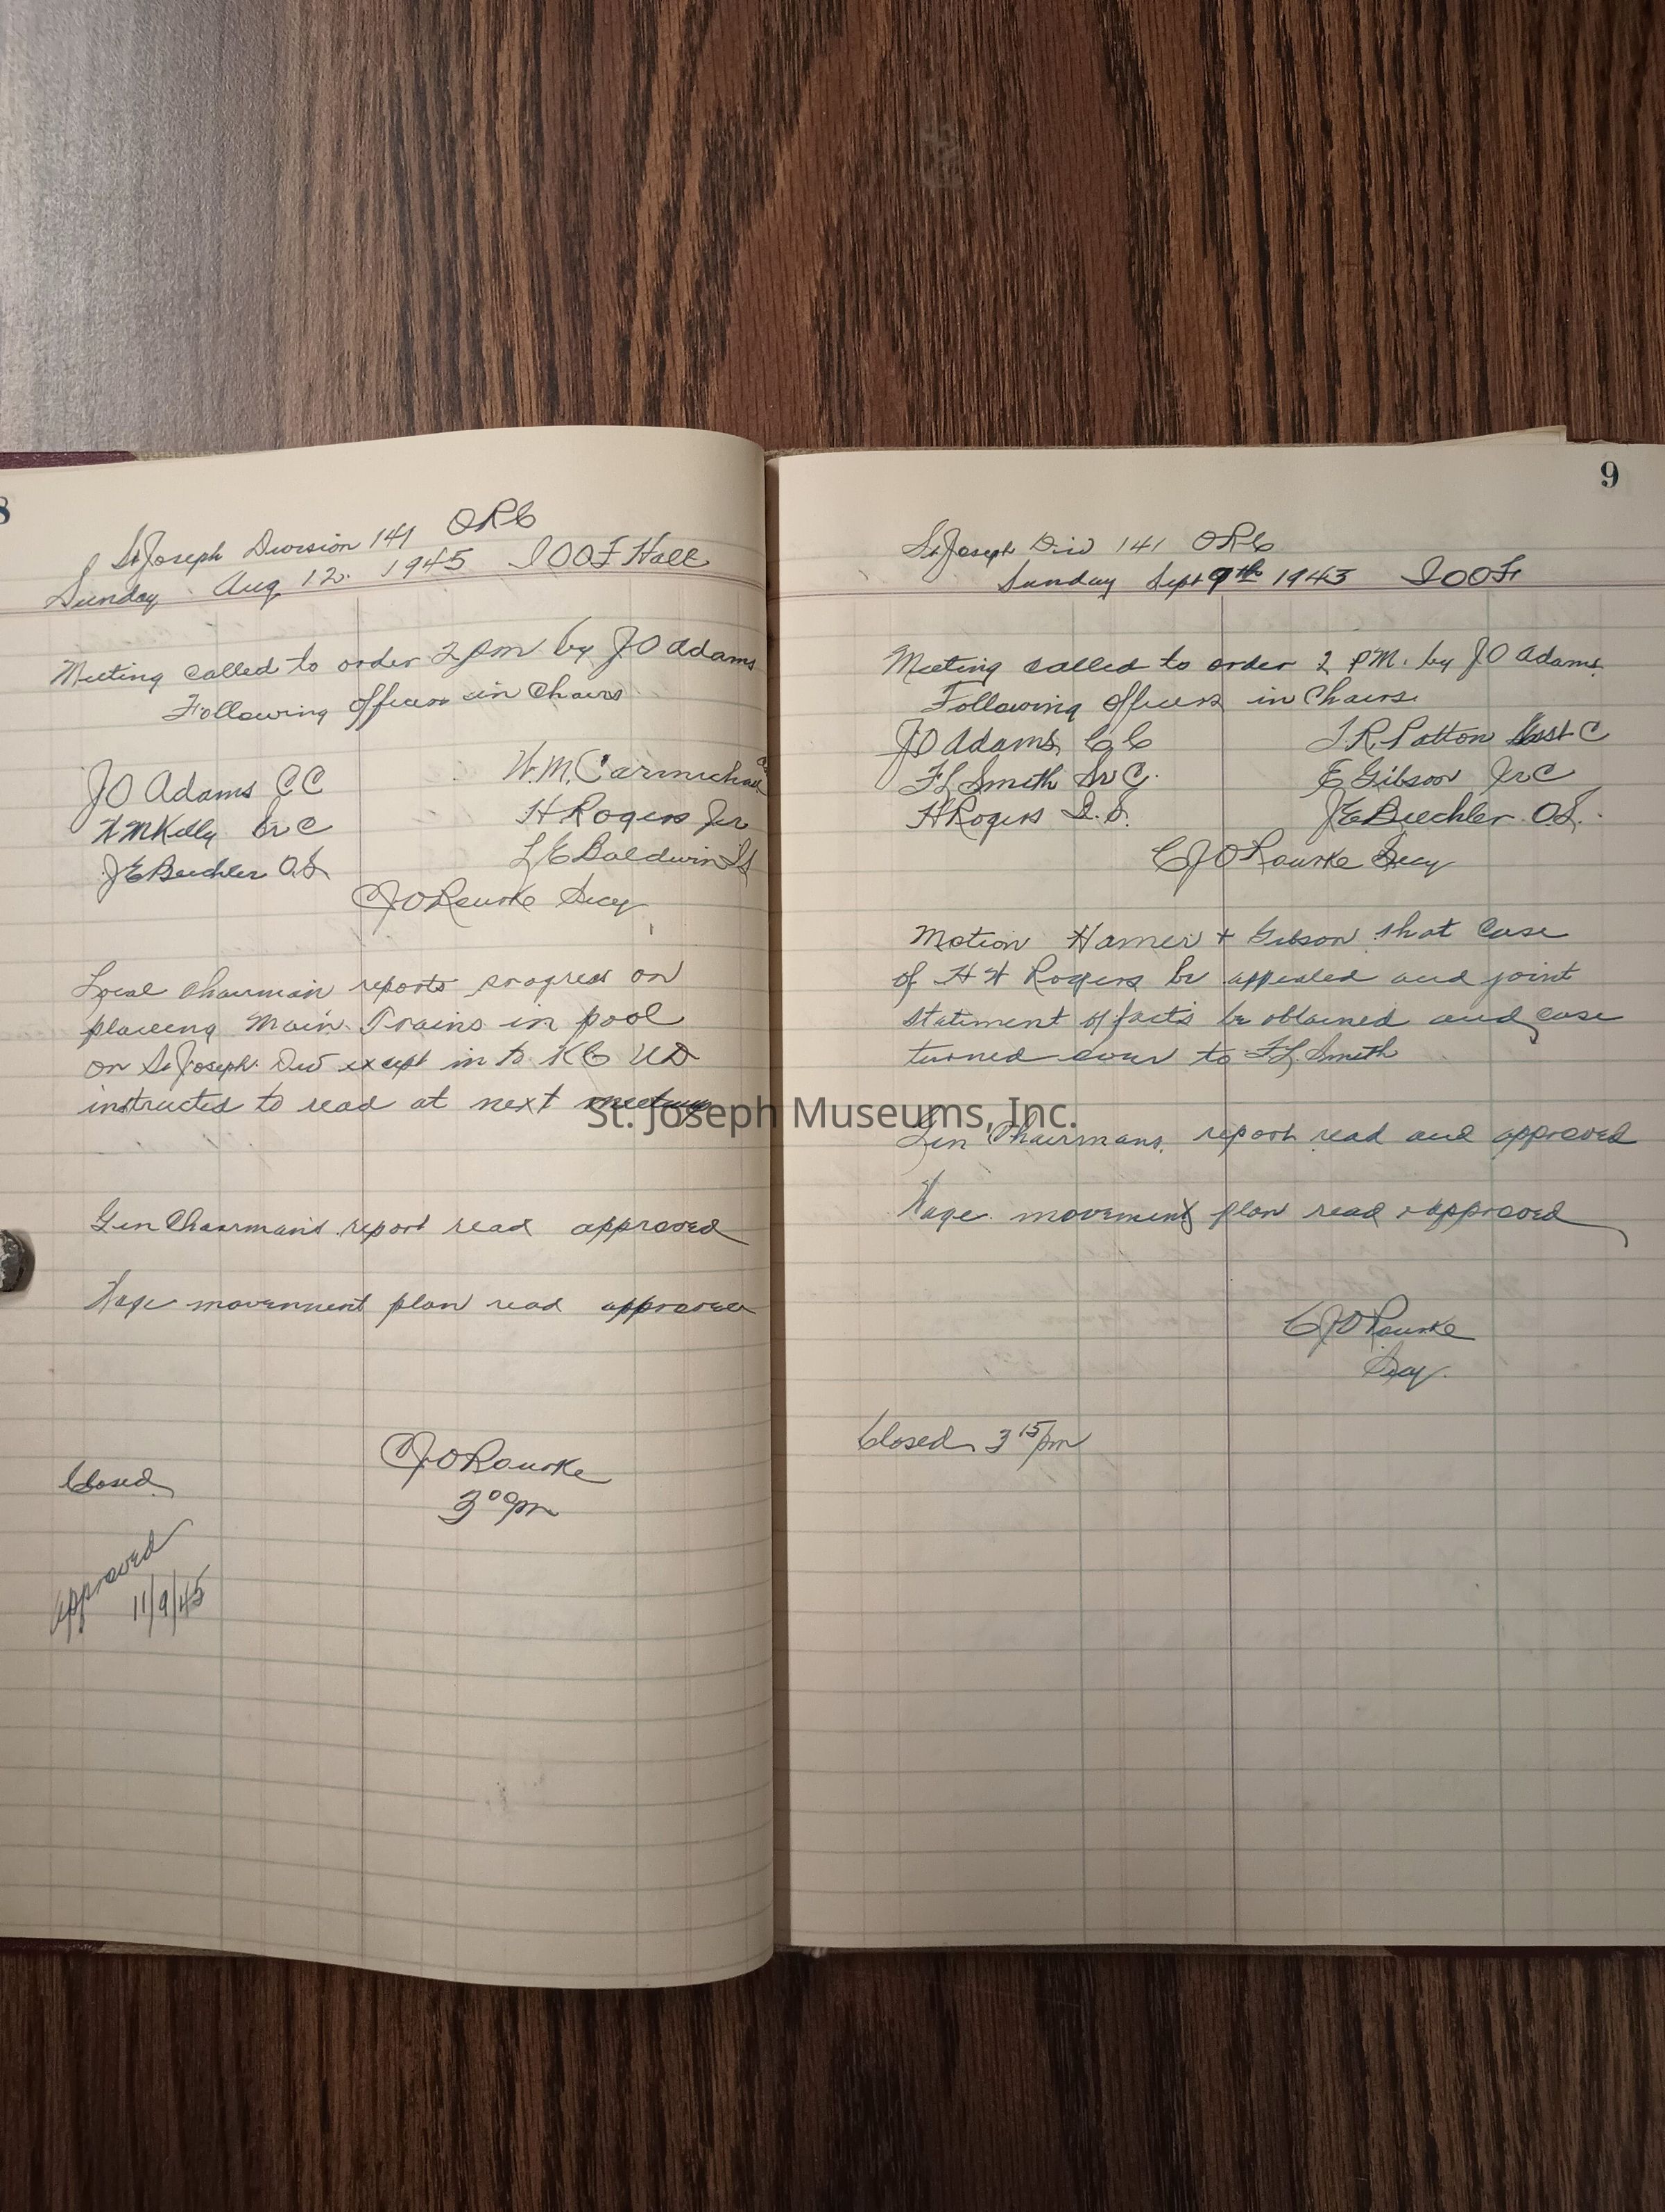 8
St Joseph Division 141 ORC
Sunday Aug 12. 1945 IOOF Hall
Meeting called to order 2 pm by JO Adams
Following officers in Chairs
JO Adams CC W.M. Carmichael
WM Kelly Sr C H Rogers Jr
JE Beechler O.S. L E Baldwin IS
CJ O Rourke Secy
Local Chairman reports progress on
placing Main Trains in pool
on St Joseph Div except in to KC
instructed to read at next meeting
Gen Chairman's report read approved
Wage movement plan read approved
CJ O Rourke
Closed 3 00 pm
Approved
11/9/45
9
St Joseph Div 141 ORC
Sunday Sept 9th 1943 IOOF
Meeting called to order 2 PM. by JO Adams
Following officers in Chairs
JO Adams CC T.R. Patton C
FL Smith Sr C. E Gibson Jr C
H Rogers I.S. JE Beechler O.S.
CJ O Rourke Secy
Motion Hamer + Gibson that case
of H H Rogers be appealed and joint
statement of facts be obtained and case
turned over to FL Smith
Gen Chairmans report read and approved
Wage movement plan read + approved
CJ O Rourke
Secy.
Closed 3 15 pm
St. Joseph Museums, Inc.